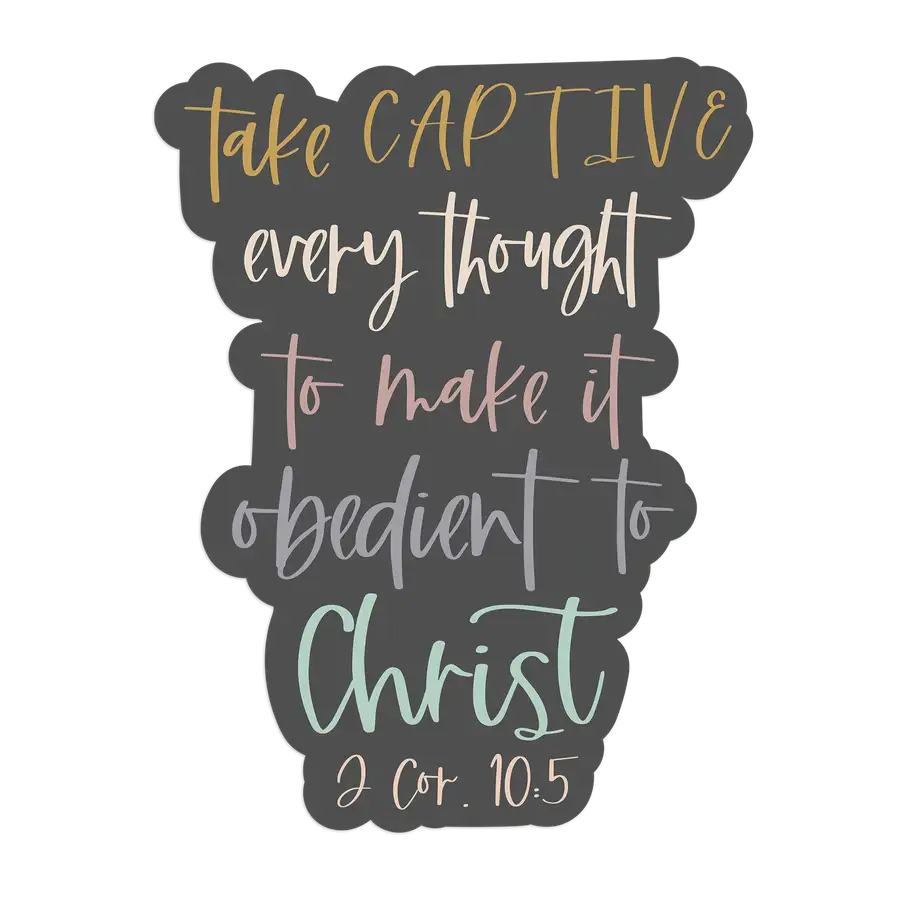 take CAPTIVE
every thought
to make it
obedient to
Christ
2 Cor. 10:5